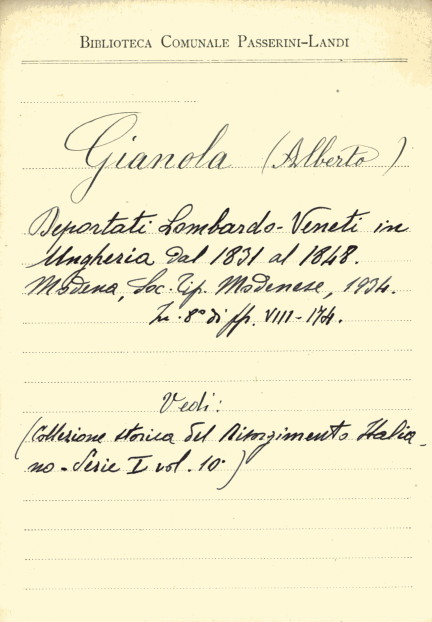 BIBLIOTECA COMUNALE PASSERINI-LANDI
Gianola (Alberto)
Deportati Lombardo-Veneti in
Ungheria dal 1831 al 1848.
Modena, Soc. Tip. Modenese, 1934.
In-8° di pp. VIII-174.
Vedi:
(Collezione storica del Risorgimento Italia-
no - Serie I vol. 10.)